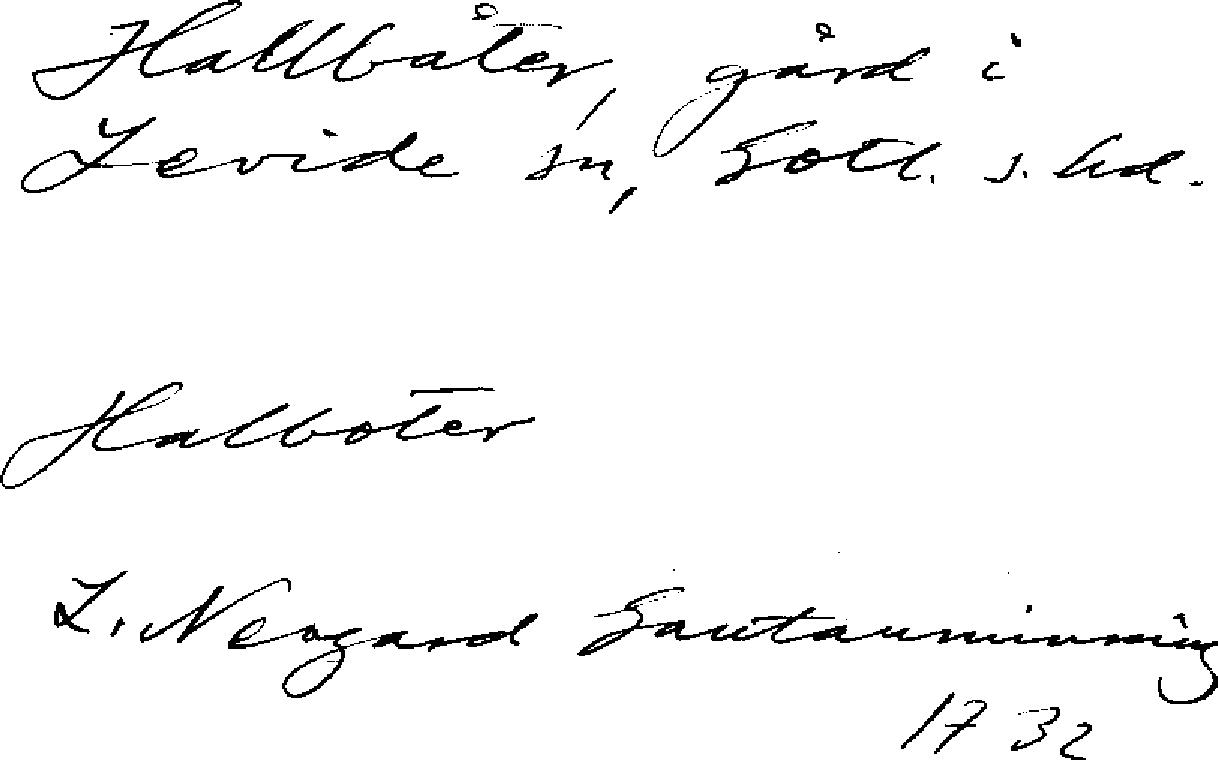 Hallbåter, gård i
Levide sn, Gotl. s. hd.
Halboter
L. Neogard Gautauminning
1732